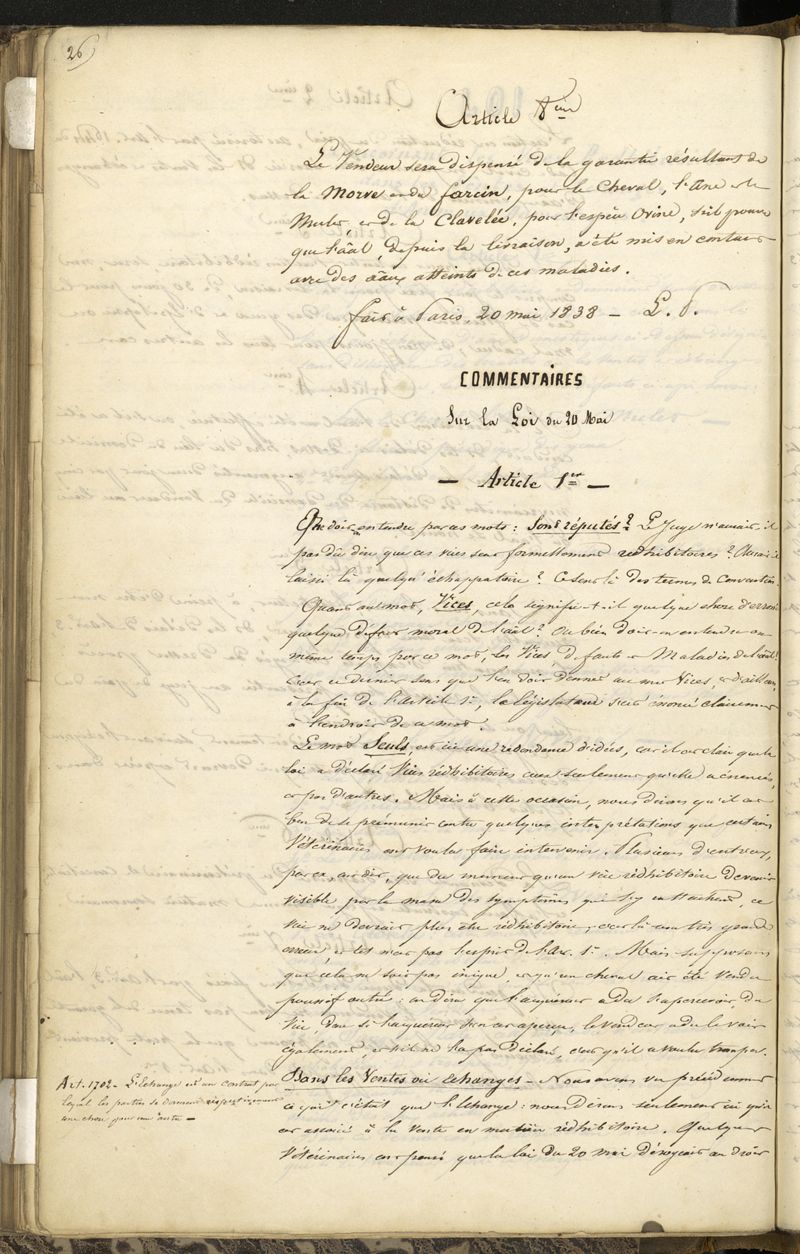 26
Article 8ème
Le Vendeur sera dispensé de la garantie résultant de
la Morve et du farcin, pour le Cheval, l'Ane et le
Mulet, et de la Clavelée, pour l'espèce Ovine, s'il prouve
que l'âal, depuis la livraison, a été mis en contact
avec des âaux atteints de ces maladies.
fait à Paris, 20 mai 1838 — L. P.
COMMENTAIRES
Sur la Loi du 20 Mai
— Article 1er —
Que doit-on entendre par ces mots : Sont réputés ? Le Juge n'aurait-il
pas dû dire que ces vices sont formellement redhibitoires ? Aurait-il
laissé là quelqu'échappatoire ? Ce sont là des termes de Convention.
Quant au mot, Vices, cela signifie-t-il quelque chose d'erroné
quelque défaut moral de l'âal ? Ou bien doit-on entendre en
même temps par ce mot, les Vices, défauts et Maladies de l'âal ?
C'est ce dernier sens que l'on doit donner au mot Vices, et d'ailleurs,
à la fin de l'article 1er, le législateur s'est énoncé clairement
à l'endroit de ce mot.
Le mot Seuls, est ici une redondance d'idées, car il est clair que la
loi a déclaré Vices rédhibitoires ceux seulement qu'elle a énoncés,
et pas d'autres. Mais à cette occasion, nous dirons qu'il est
bon de se prémunir contre quelques interprétations que certains
Vétérinaires ont voulu faire intervenir. Plusieurs d'entr'eux,
par ex, ont dit, que du moment qu'un vice rédhibitoire devenait
visible par la masse des symptômes qui s'y rattachent, ce
vice ne devrait plus être rédhibitoire ; c'est là une très grande
erreur, et tel n'est pas l'esprit de l'Art. 1er. Mais supposons
que cela ne soit pas inique, et qu'un cheval ait été vendu
poussif outré : on dira que l'acquéreur a dû s'apercevoir du
Vice, Donc si l'acquéreur s'en est aperçu, le vendeur a dû le voir
également, et s'il ne l'a pas déclaré, c'est qu'il a voulu tromper.
Dans les Ventes ou échanges — Nous avons vu précédemment
ce que c'était que l'Echange : nous dirons seulement ici qu'il
est associé à la vente en matière rédhibitoire. Quelques
Vétérinaires ont pensé que la loi du 20 mai dérogeait au droit
Art. 1702 — L'échange est un contrat par
lequel les parties se donnent respectivement
une chose pour une autre —